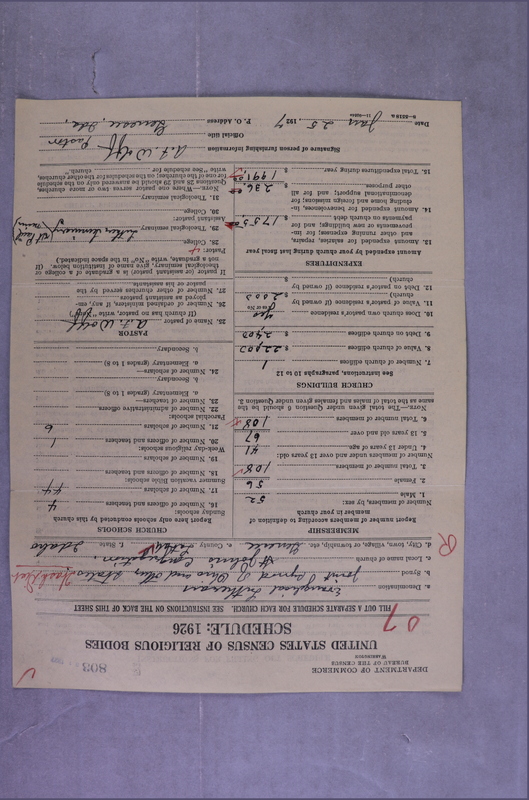 DEPARTMENT OF COMMERCE
BUREAU OF THE CENSUS
WASHINGTON
803
UNITED STATES CENSUS OF RELIGIOUS BODIES
SCHEDULE: 1926
FILL OUT A SEPARATE SCHEDULE FOR EACH CHURCH. SEE INSTRUCTIONS ON THE BACK OF THIS SHEET
a. Denomination Evangelical Lutheran
b. Synod Joint Synod of Ohio and other States
c. Local name of church St Johns Congregation
d. City, town, village, or township, etc. Genesee e. County f. State Idaho
R
MEMBERSHIP
Report number of members according to definition of member in your church
Number of members, by sex:
1. Male 52
2. Female 56
3. Total number of members 108
Number of members under and over 13 years old:
4. Under 13 years of age 41
5. 13 years old and over 67
6. Total number of members 108
NOTE.—The total given under Question 6 should be the same as the total of males and females given under Question 3.
CHURCH BUILDINGS
See instructions, paragraphs 10 to 12
7. Number of church edifices 1
8. Value of church edifices $ 22,000
9. Debt on church edifices $ 2400
10. Does church own pastor's residence yes
(Yes or No)
11. Value of pastor's residence (if owned by church) $ 2000
12. Debt on pastor's residence (if owned by church) $
EXPENDITURES
Amount expended by your church during last fiscal year
13. Amount expended for salaries, repairs, and other running expenses; for improvements or new buildings; and for payments on church debt $ 1755
14. Amount expended for benevolence, including home and foreign missions; for denominational support; and for all other purposes $ 236
15. Total expenditures during year $ 1991
CHURCH SCHOOLS
Report here only schools conducted by this church
Sunday schools:
16. Number of officers and teachers 4
17. Number of scholars 44
Summer vacation Bible schools:
18. Number of officers and teachers
19. Number of scholars
Week-day religious schools:
20. Number of officers and teachers 1
21. Number of scholars 6
Parochial schools:
22. Number of administrative officers
23. Number of teachers—
a. Elementary (grades 1 to 8)
b. Secondary
24. Number of scholars—
a. Elementary (grades 1 to 8)
b. Secondary
PASTOR
25. Name of pastor A. F. Wolff
(If church has no pastor, write "No")
26. Number of ordained ministers, if any, employed as assistant pastors
27. Number of other churches served by the pastor or his assistants
If pastor (or assistant pastor) is a graduate of college or theological seminary, give name of institution below. (If not a graduate, write "No" in the space indicated.)
Pastor:
28. College
29. Theological seminary Luther Seminary St Paul Minn
Assistant pastor:
30. College
31. Theological seminary
NOTE.—Where one pastor serves two or more churches, Questions 28 and 29 should be answered only on the schedule for one of the churches; on the schedule for the other churches, write "See schedule for church."
Signature of person furnishing information A. F. Wolff
Official title Pastor
Date Jan 25, 1927 P. O. Address Genesee, Ida,